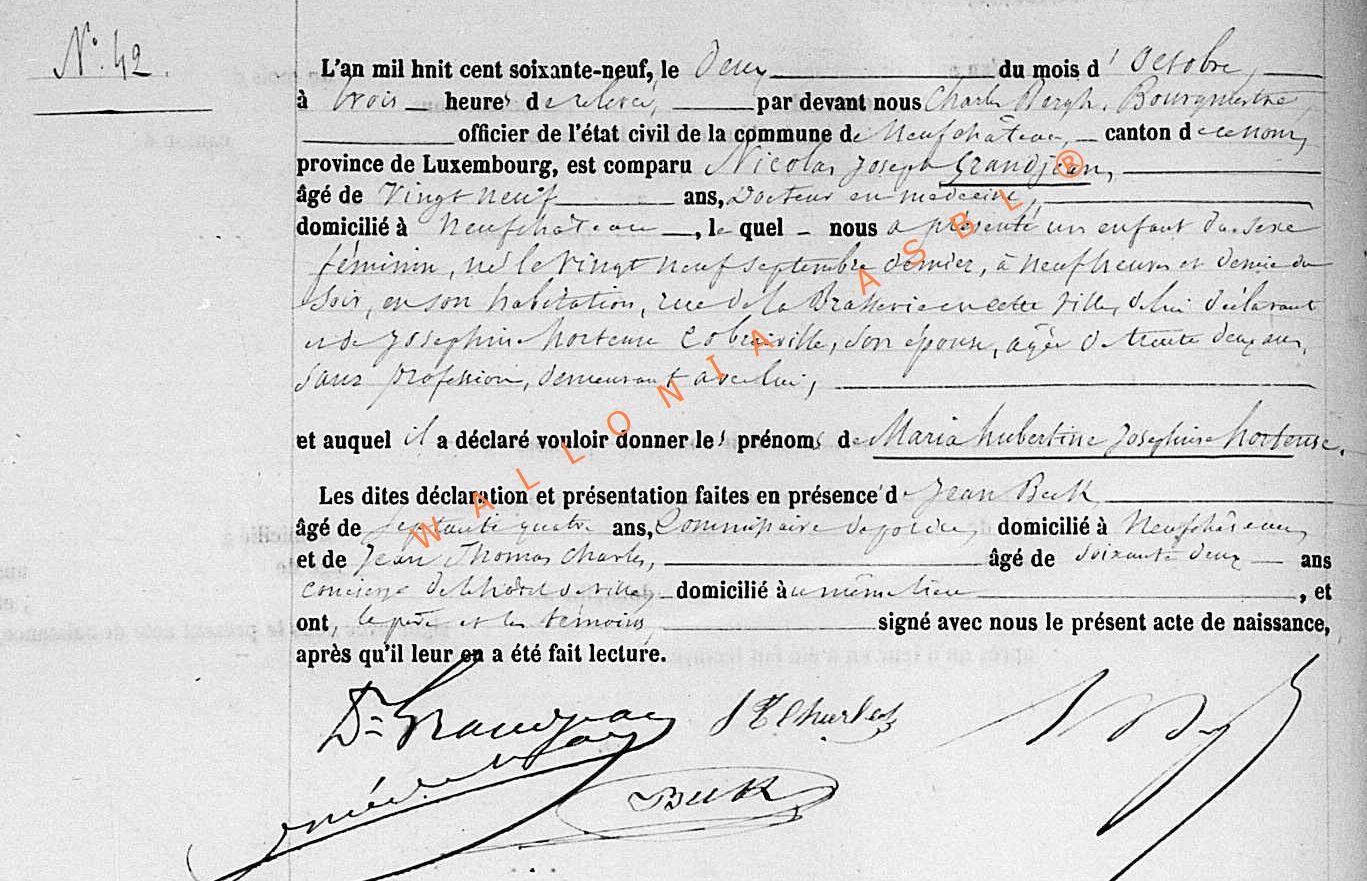 N° 42.
L'an mil hnit cent soixante-neuf, le Deux du mois d'Octobre,
à trois heures de relevée, par devant nous Charles Bergh, Bourgmestre,
officier de l'état civil de la commune de Neufchâteau, canton de ce nom,
province de Luxembourg, est comparu Nicolas Joseph Grandjean,
âgé de Vingt neuf ans, Docteur en médecine,
domicilié à Neufchâteau, le quel nous a présenté un enfant du sexe
féminin, né le Vingt neuf septembre dernier, à neuf heures et demie du
soir, en son habitation, rue de la Brasserie en cette ville, de lui déclarant
et de Joséphine hortense, son épouse, agée de trente deux ans,
sans profession, demeurant avec lui,
et auquel il a déclaré vouloir donner les prénoms de Maria hubertine Joséphine hortense.
Les dites déclaration et présentation faites en présence de Jean Beck
âgé de septante quatre ans, Commissaire de police, domicilié à Neufchâteau,
et de Jean Thomas Charles, âgé de soixante deux ans
concierge de l'hôtel de ville, domicilié au même lieu, et
ont, le père et les témoins, signé avec nous le présent acte de naissance,
après qu'il leur en a été fait lecture.
Dr Grandjean
J T Charles
Beck
WALLONIA ASBL ®